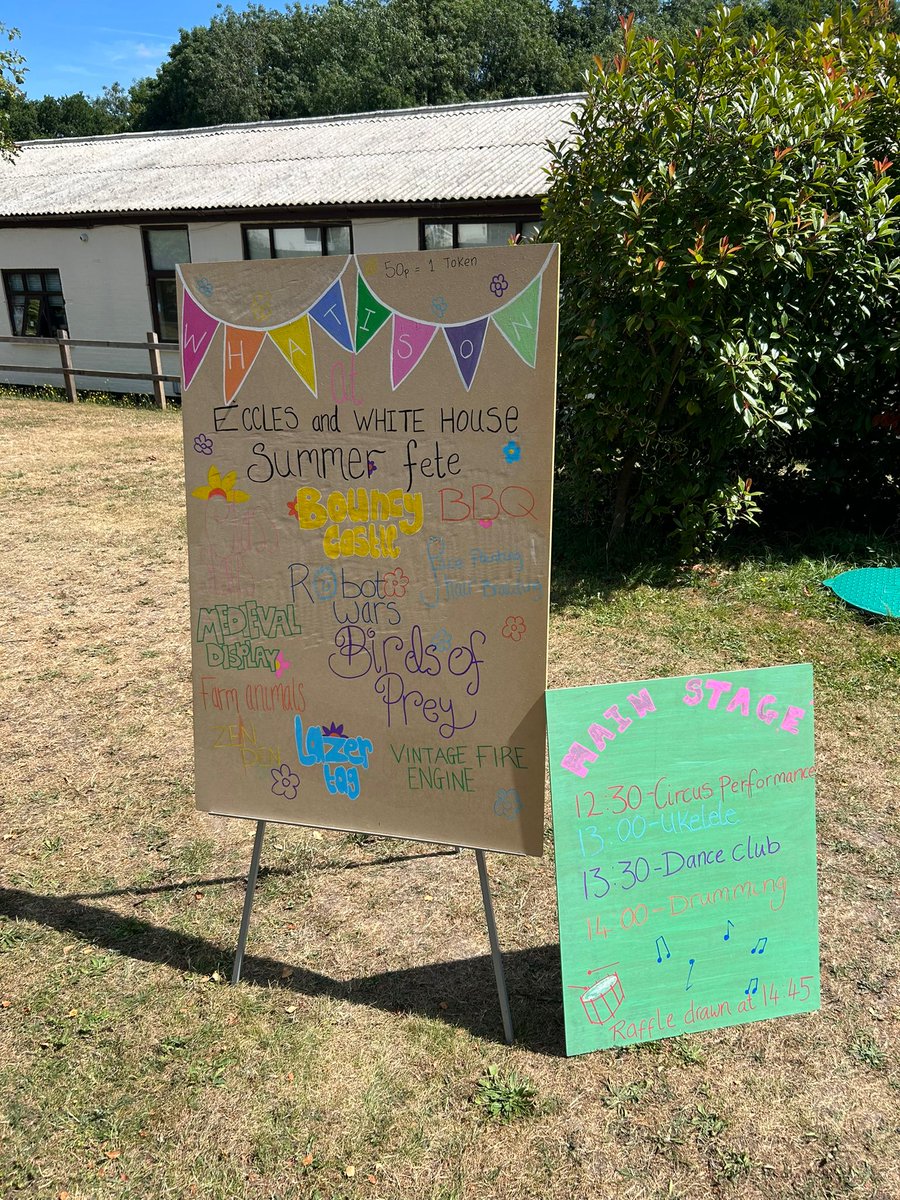 50p = 1 Token
WHAT IS ON
at
ECCLES and WHITE HOUSE
Summer fete
Bouncy
Castle
BBQ
Robot
wars
MEDIEVAL
DISPLAY
Birds of
Prey
Farm animals
ZEN
DEN
Lazer
tag
VINTAGE FIRE
ENGINE
MAIN STAGE
12.30-Circus Performance
13.00-Ukelele
13.30-Dance Club
14.00-Drumming
Raffle drawn at 14.45